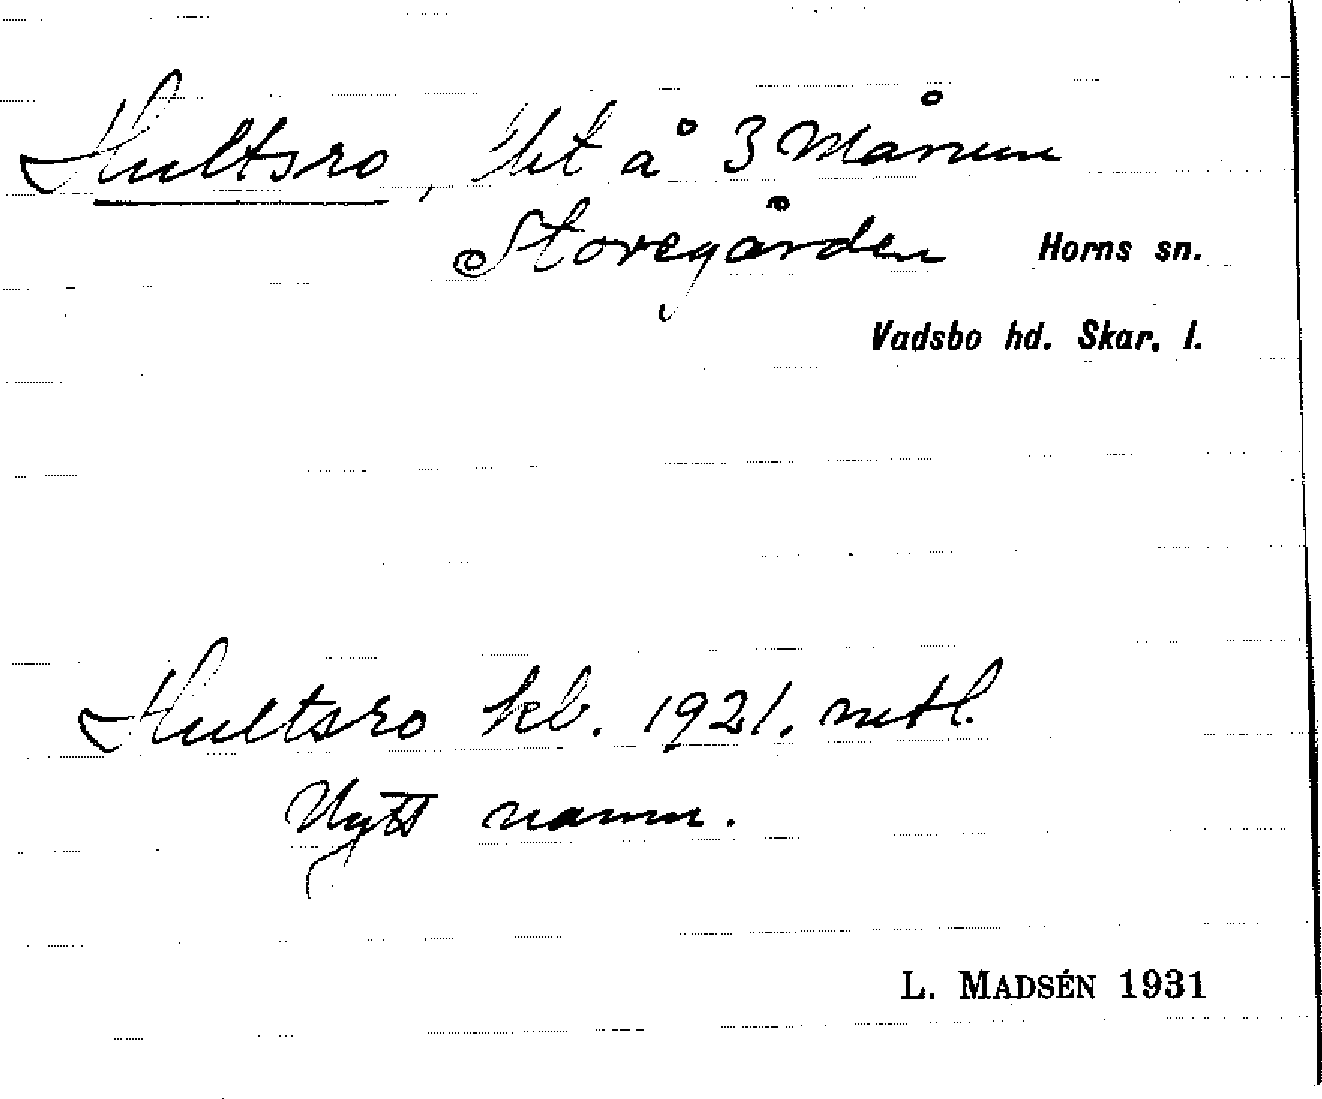 Hultsro, lht å 3 Månum
Storegården Horns sn.
Vadsbo hd. Skar. l.
Hultsro kb. 1921. mtl.
Nytt namn.
L. MADSÉN 1931